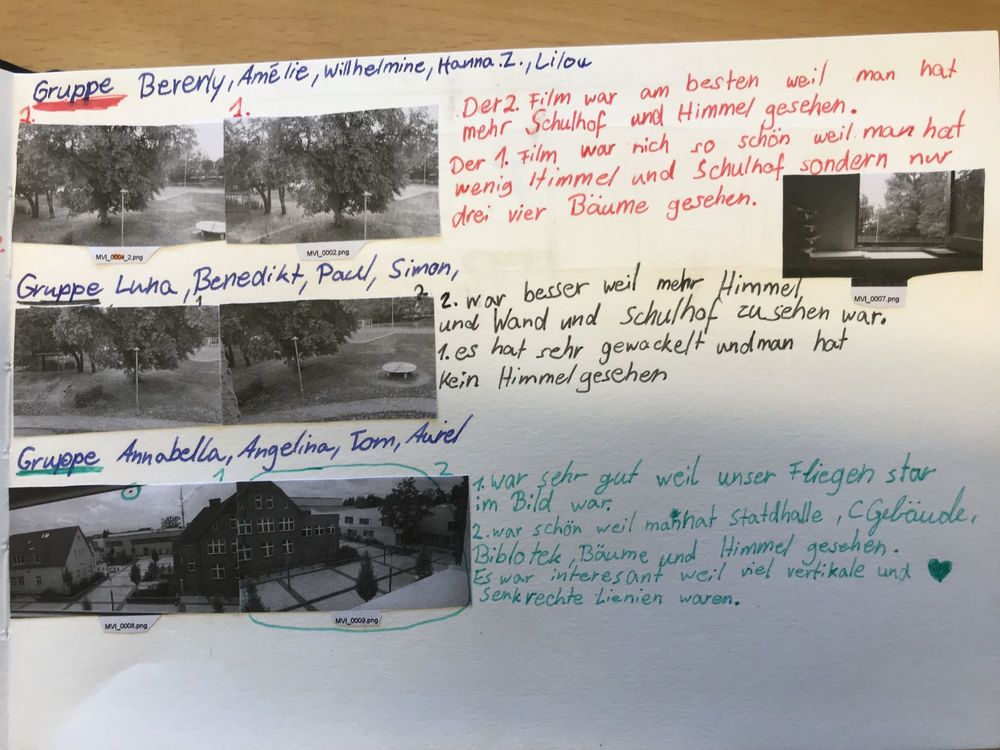 Gruppe Bererly, Amélie, Willhelmine, Hanna.Z., Lilou
2. 1.
Der 2. Film war am besten weil man hat
mehr Schulhof und Himmel gesehen.
Der 1. Film war nich so schön weil man hat
wenig Himmel und Schulhof sondern nur
drei vier Bäume gesehen.
MVI_0004_2.png MVI_0002.png
MVI_0007.png
Gruppe Luna, Benedikt, Paul, Simon,
1 2
2. war besser weil mehr Himmel
und Wand und Schulhof zu sehen war.
1. es hat sehr gewackelt und man hat
kein Himmel gesehen
Gruppe Annabella, Angelina, Tom, Aurel
1 2
1. war sehr gut weil unser Fliegen star
im Bild war.
2. war schön weil man hat Statdhalle, C Gebäude,
Biblotek, Bäume und Himmel gesehen.
Es war interesant weil viel vertikale und
senkrechte Lienien waren.
MVI_0008.png MVI_0009.png